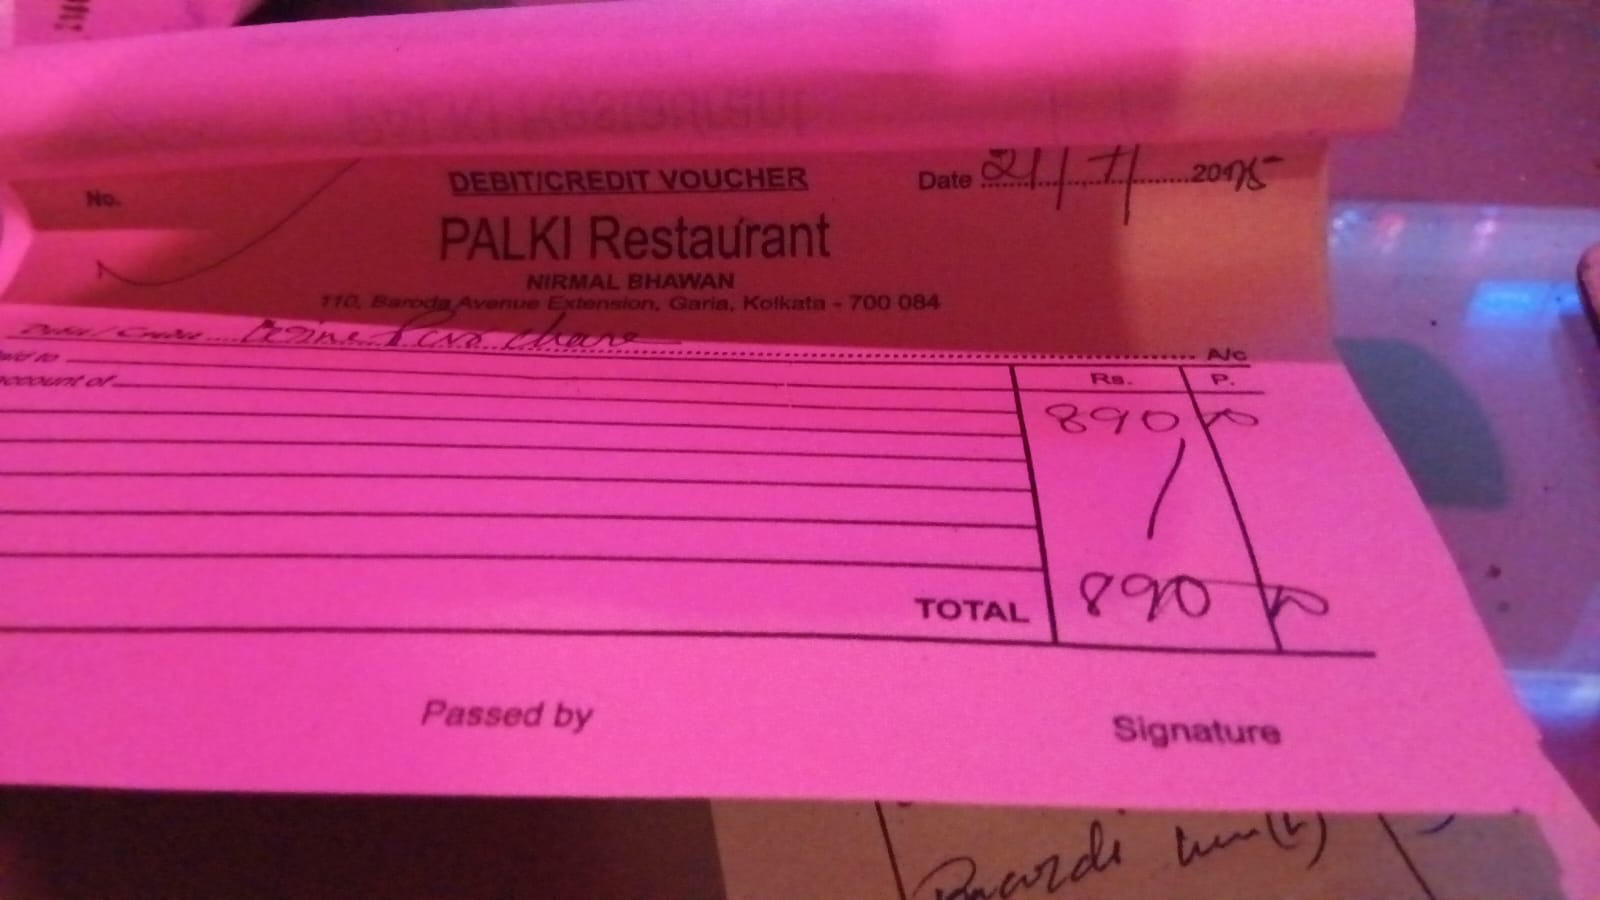 DEBIT/CREDIT VOUCHER
No.
Date 21/7/2025
PALKI Restaurant
NIRMAL BHAWAN
110, Baroda Avenue Extension, Garia, Kolkata - 700 084
Debit / Credit A/c
aid to
account of
Rs. P.
890
TOTAL 890
Passed by Signature